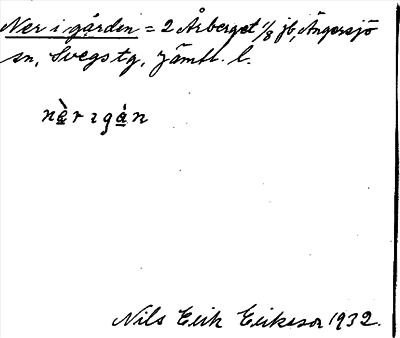 Ner i gården = 2 Årberget 1/8 jb, Ängersjö
sn, Svegs tg, Jämtl. l.
nὲ̱r ɪ gá̱n
Nils Erik Eriksson 1932.